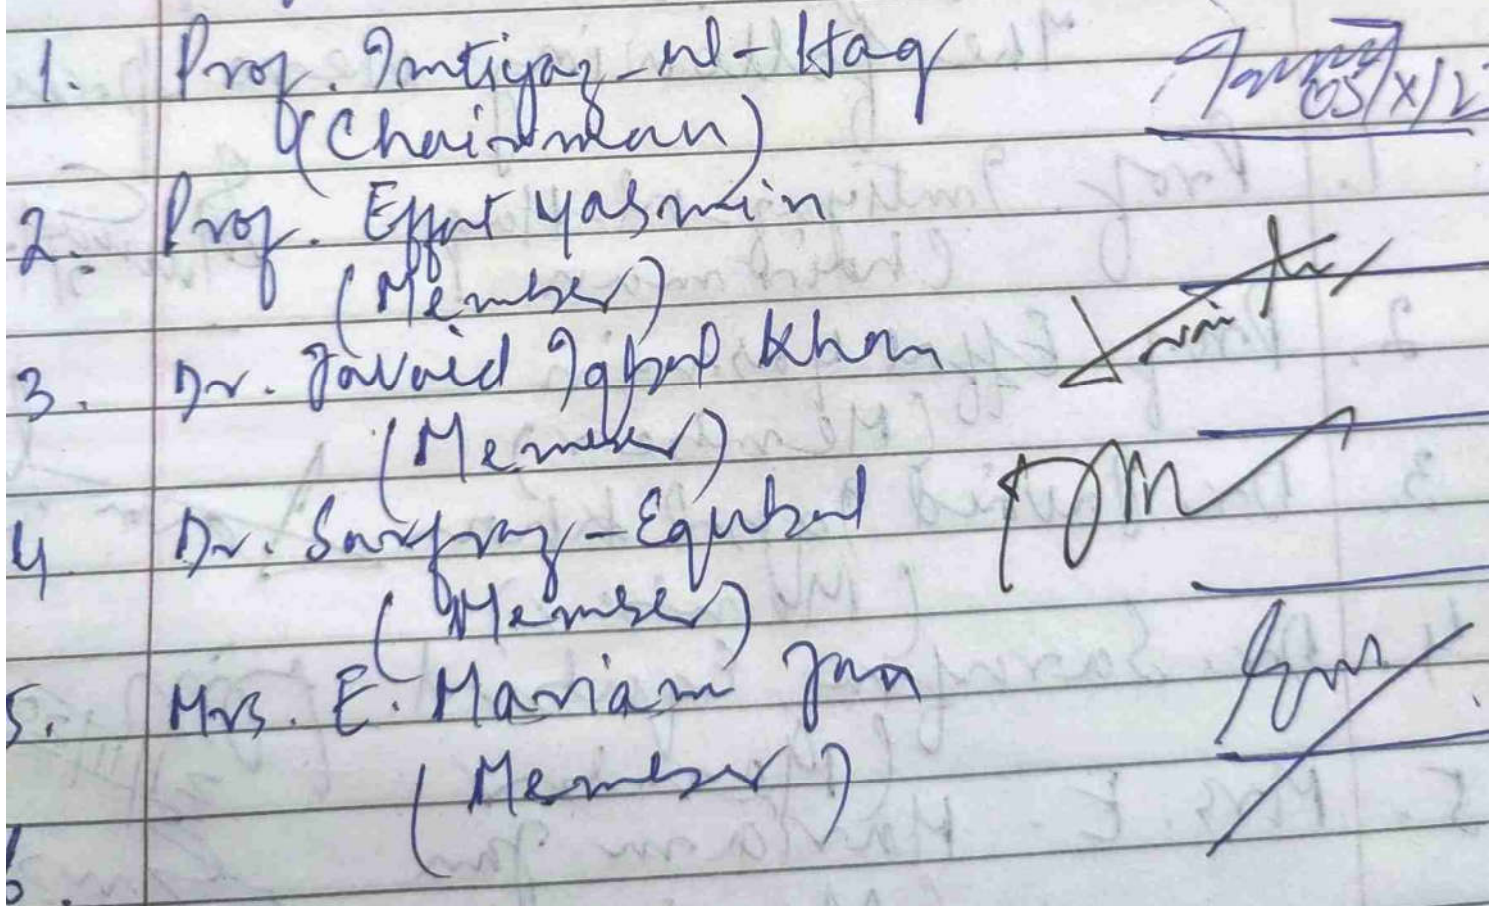 1. Prof. Imtiyaz-ul-Haq
05/X/2
(Chairman)
2. Prof. Effat Yasmin
(Member)
3. Dr. Javaid Iqbal Khan
(Member)
4 Dr. Sarfraz-Equbal
(Member)
5. Mrs. E. Mariam Jan
(Member)
6.